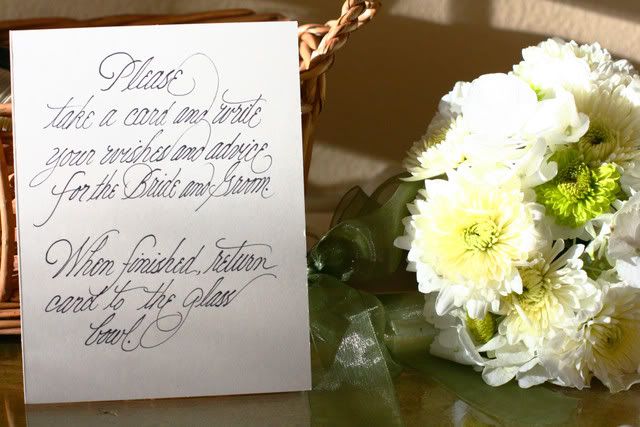 Please
take a card and write
your wishes and advice
for the Bride and Groom.
When finished, return
card to the glass
bowl.